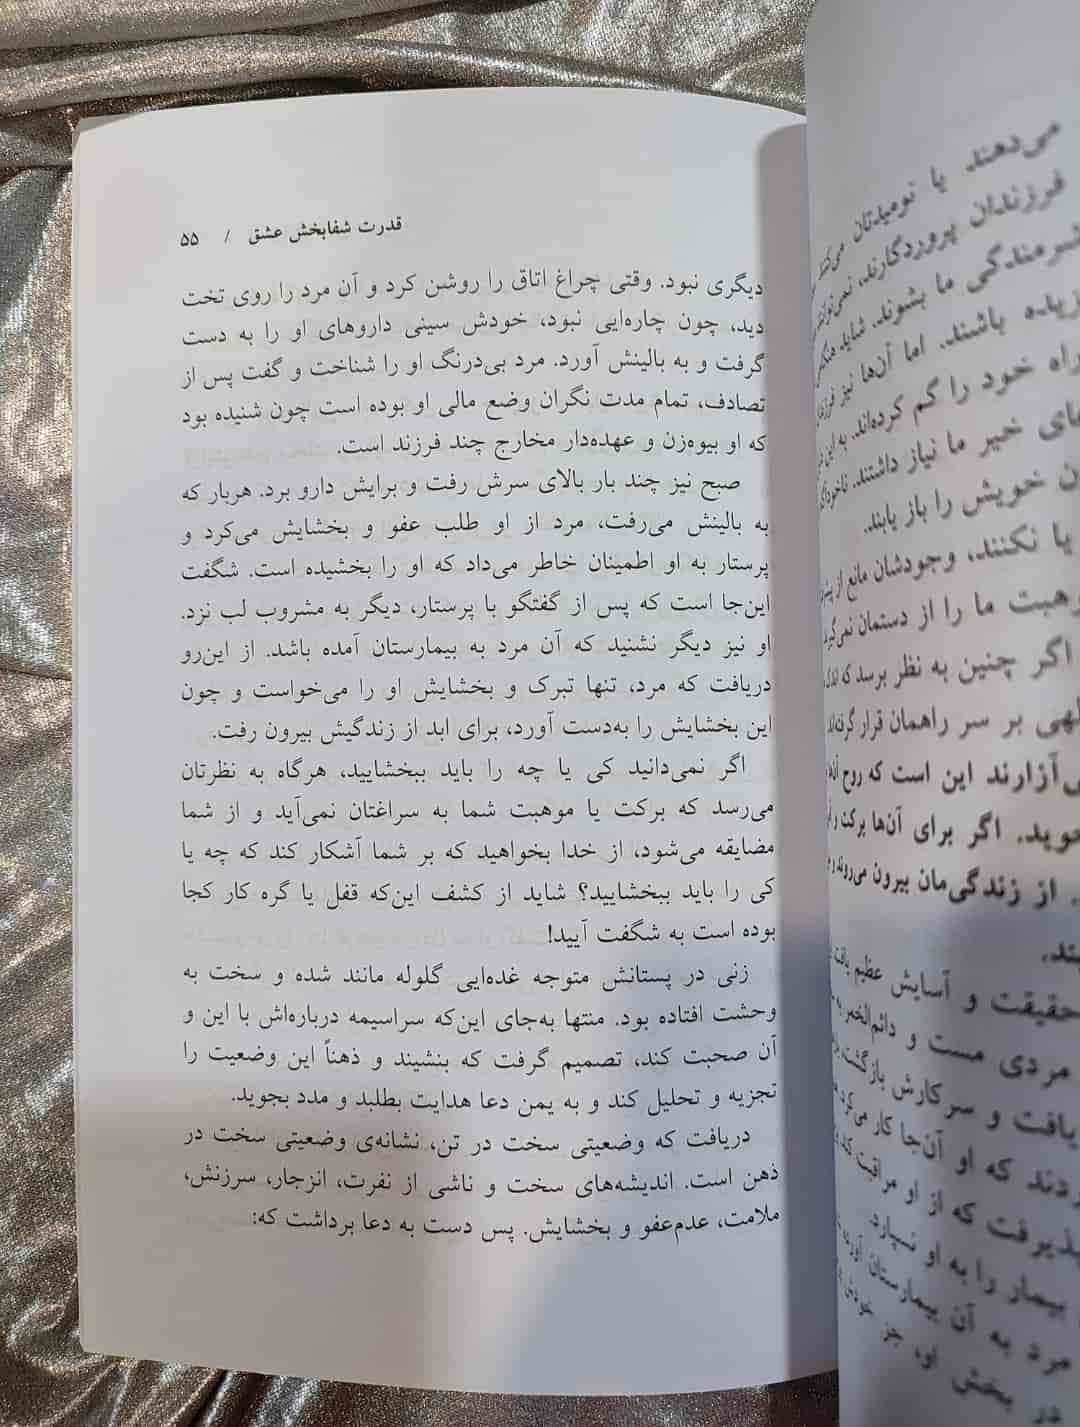 قدرت شفابخش عشق / ۵۵
دیگری نبود. وقتی چراغ اتاق را روشن کرد و آن مرد را روی تخت
دید، چون چاره‌ایی نبود، خودش سینی داروهای او را به دست
گرفت و به بالینش آورد. مرد بی‌درنگ او را شناخت و گفت پس از
تصادف، تمام مدت نگران وضع مالی او بوده است چون شنیده بود
که او بیوه‌زن و عهده‌دار مخارج چند فرزند است.
صبح نیز چند بار بالای سرش رفت و برایش دارو برد. هربار که
به بالینش می‌رفت، مرد از او طلب عفو و بخشایش می‌کرد و
پرستار به او اطمینان خاطر می‌داد که او را بخشیده است. شگفت
این‌جا است که پس از گفتگو با پرستار، دیگر به مشروب لب نزد.
او نیز دیگر نشنید که آن مرد به بیمارستان آمده باشد. از این‌رو
دریافت که مرد، تنها تبرک و بخشایش او را می‌خواست و چون
این بخشایش را به‌دست آورد، برای ابد از زندگیش بیرون رفت.
اگر نمی‌دانید کی یا چه را باید ببخشایید، هرگاه به نظرتان
می‌رسد که برکت یا موهبت شما به سراغتان نمی‌آید و از شما
مضایقه می‌شود، از خدا بخواهید که بر شما آشکار کند که چه یا
کی را باید ببخشایید؟ شاید از کشف این‌که قفل یا گره کار کجا
بوده است به شگفت آیید!
زنی در پستانش متوجه غده‌ایی گلوله مانند شده و سخت به
وحشت افتاده بود. منتها به‌جای این‌که سراسیمه درباره‌اش با این و
آن صحبت کند، تصمیم گرفت که بنشیند و ذهناً این وضعیت را
تجزیه و تحلیل کند و به یمن دعا هدایت بطلبد و مدد بجوید.
دریافت که وضعیتی سخت در تن، نشانه‌ی وضعیتی سخت در
ذهن است. اندیشه‌های سخت و ناشی از نفرت، انزجار، سرزنش،
ملامت، عدم‌عفو و بخشایش. پس دست به دعا برداشت که:
می‌دهند یا نومیدتان می‌کنند
فرزندان پروردگارند، نمی‌توانند
شرمندگی ما بشوند. شاید
باشند. اما آن‌ها نیز
راه خود را گم کرده‌اند. به این
خیر ما نیاز داشتند.
خویش را باز یابند.
یا نکنند، وجودشان مانع از
ما را از دستمان نمی‌گیرد
اگر چنین به نظر برسد که
بر سر راهمان قرار گرفته‌اند
این است که روح آن‌ها
اگر برای آن‌ها برکت
از زندگی‌مان بیرون می‌روند و
حقیقت و آسایش عظیم
مردی مست و دائم‌الخمر به
یافت و سرکارش بازگشت.
که او آن‌جا کار می‌کرد
که از او مراقبت کند
بیمار را به او نسپارد.
مرد به آن بیمارستان آورده
در بخش او، جز خودش